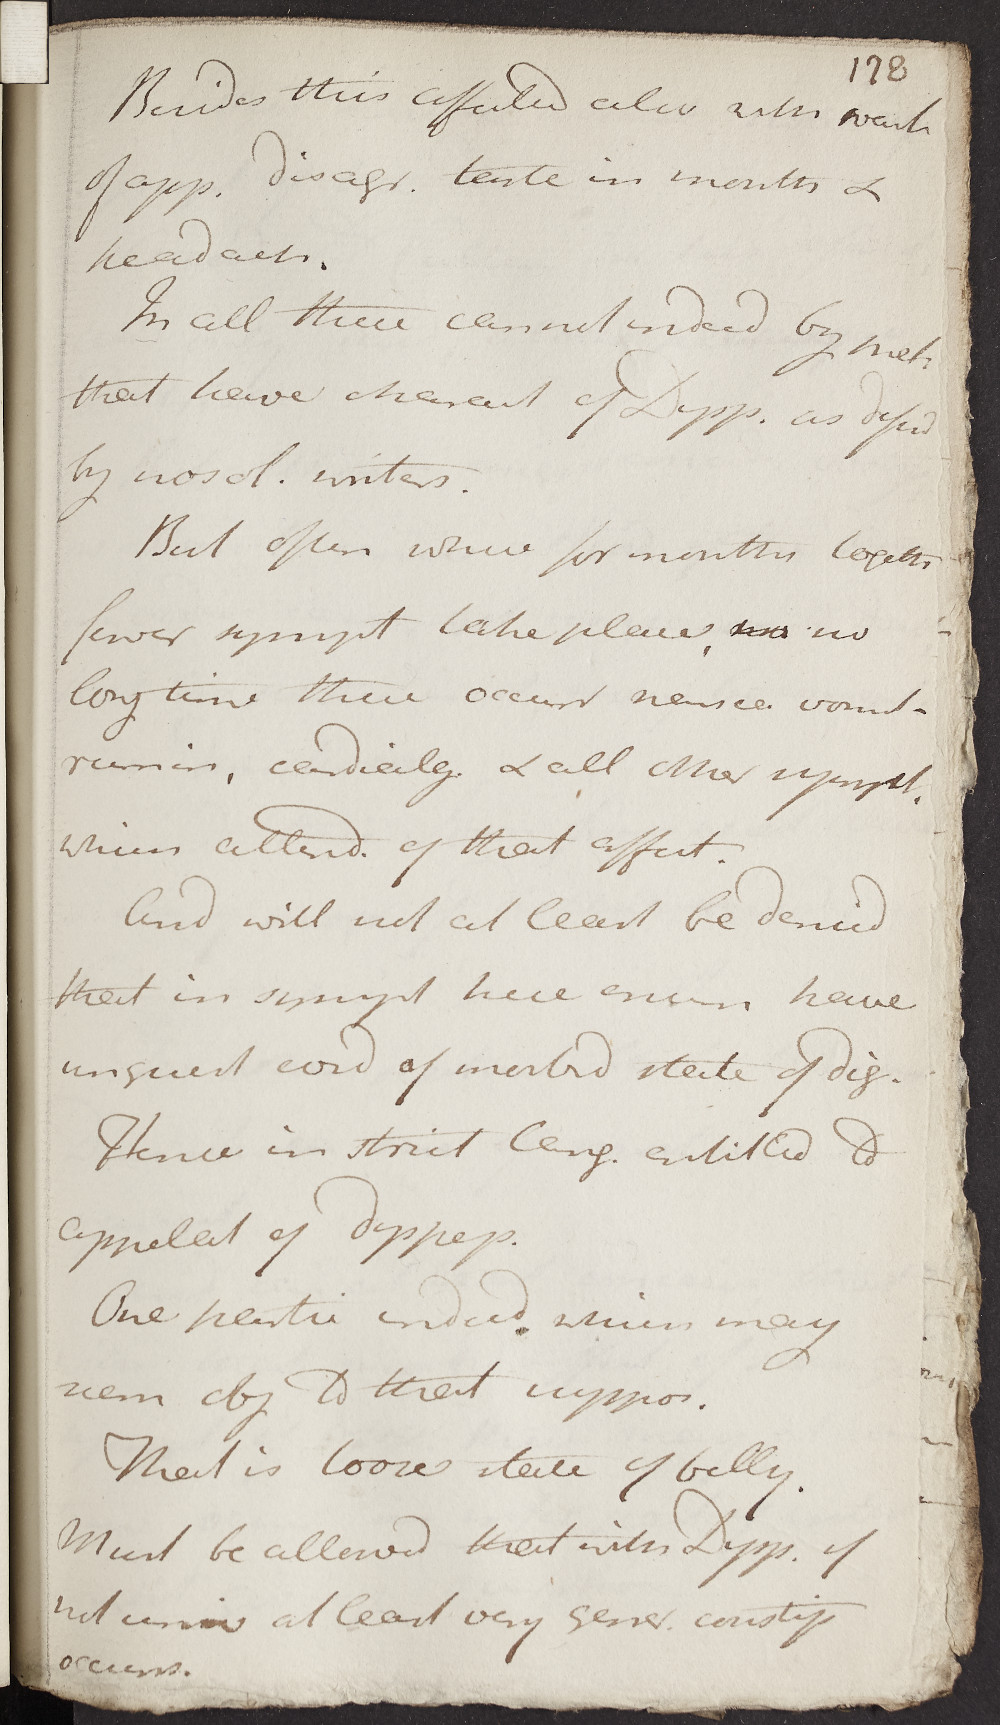 178
Besides this affected also with want
of app. disagr. taste in mouth &
headach.
In all these cannot indeed by
that have charact of Dysp. as defin
by nosol. writers.
But often where for months togeth
fewer sympt take place, no
long time there occurr nausea vomit-
rumin, cardialg. & all other sympt.
which attend. of that affect.
And will not at least be denied
that in sympt here enum have
unquest evid of morbid state of dig.
Hence in strict lang. entitled to
appelat of dyspeps.
One partic indeed. which may
seem obj to that suppos.
That is loose state of belly.
Must be allowed that with Dysp. if
not univ at least very gener. constip
occurrs.